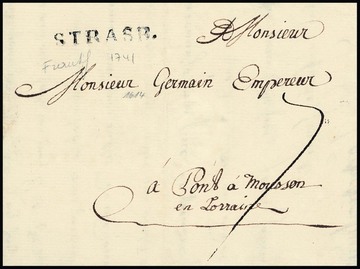 STRASB.
A Monsieur
1741
Monsieur Germain Empereur
à Pont à Mousson
en Lorraine
7